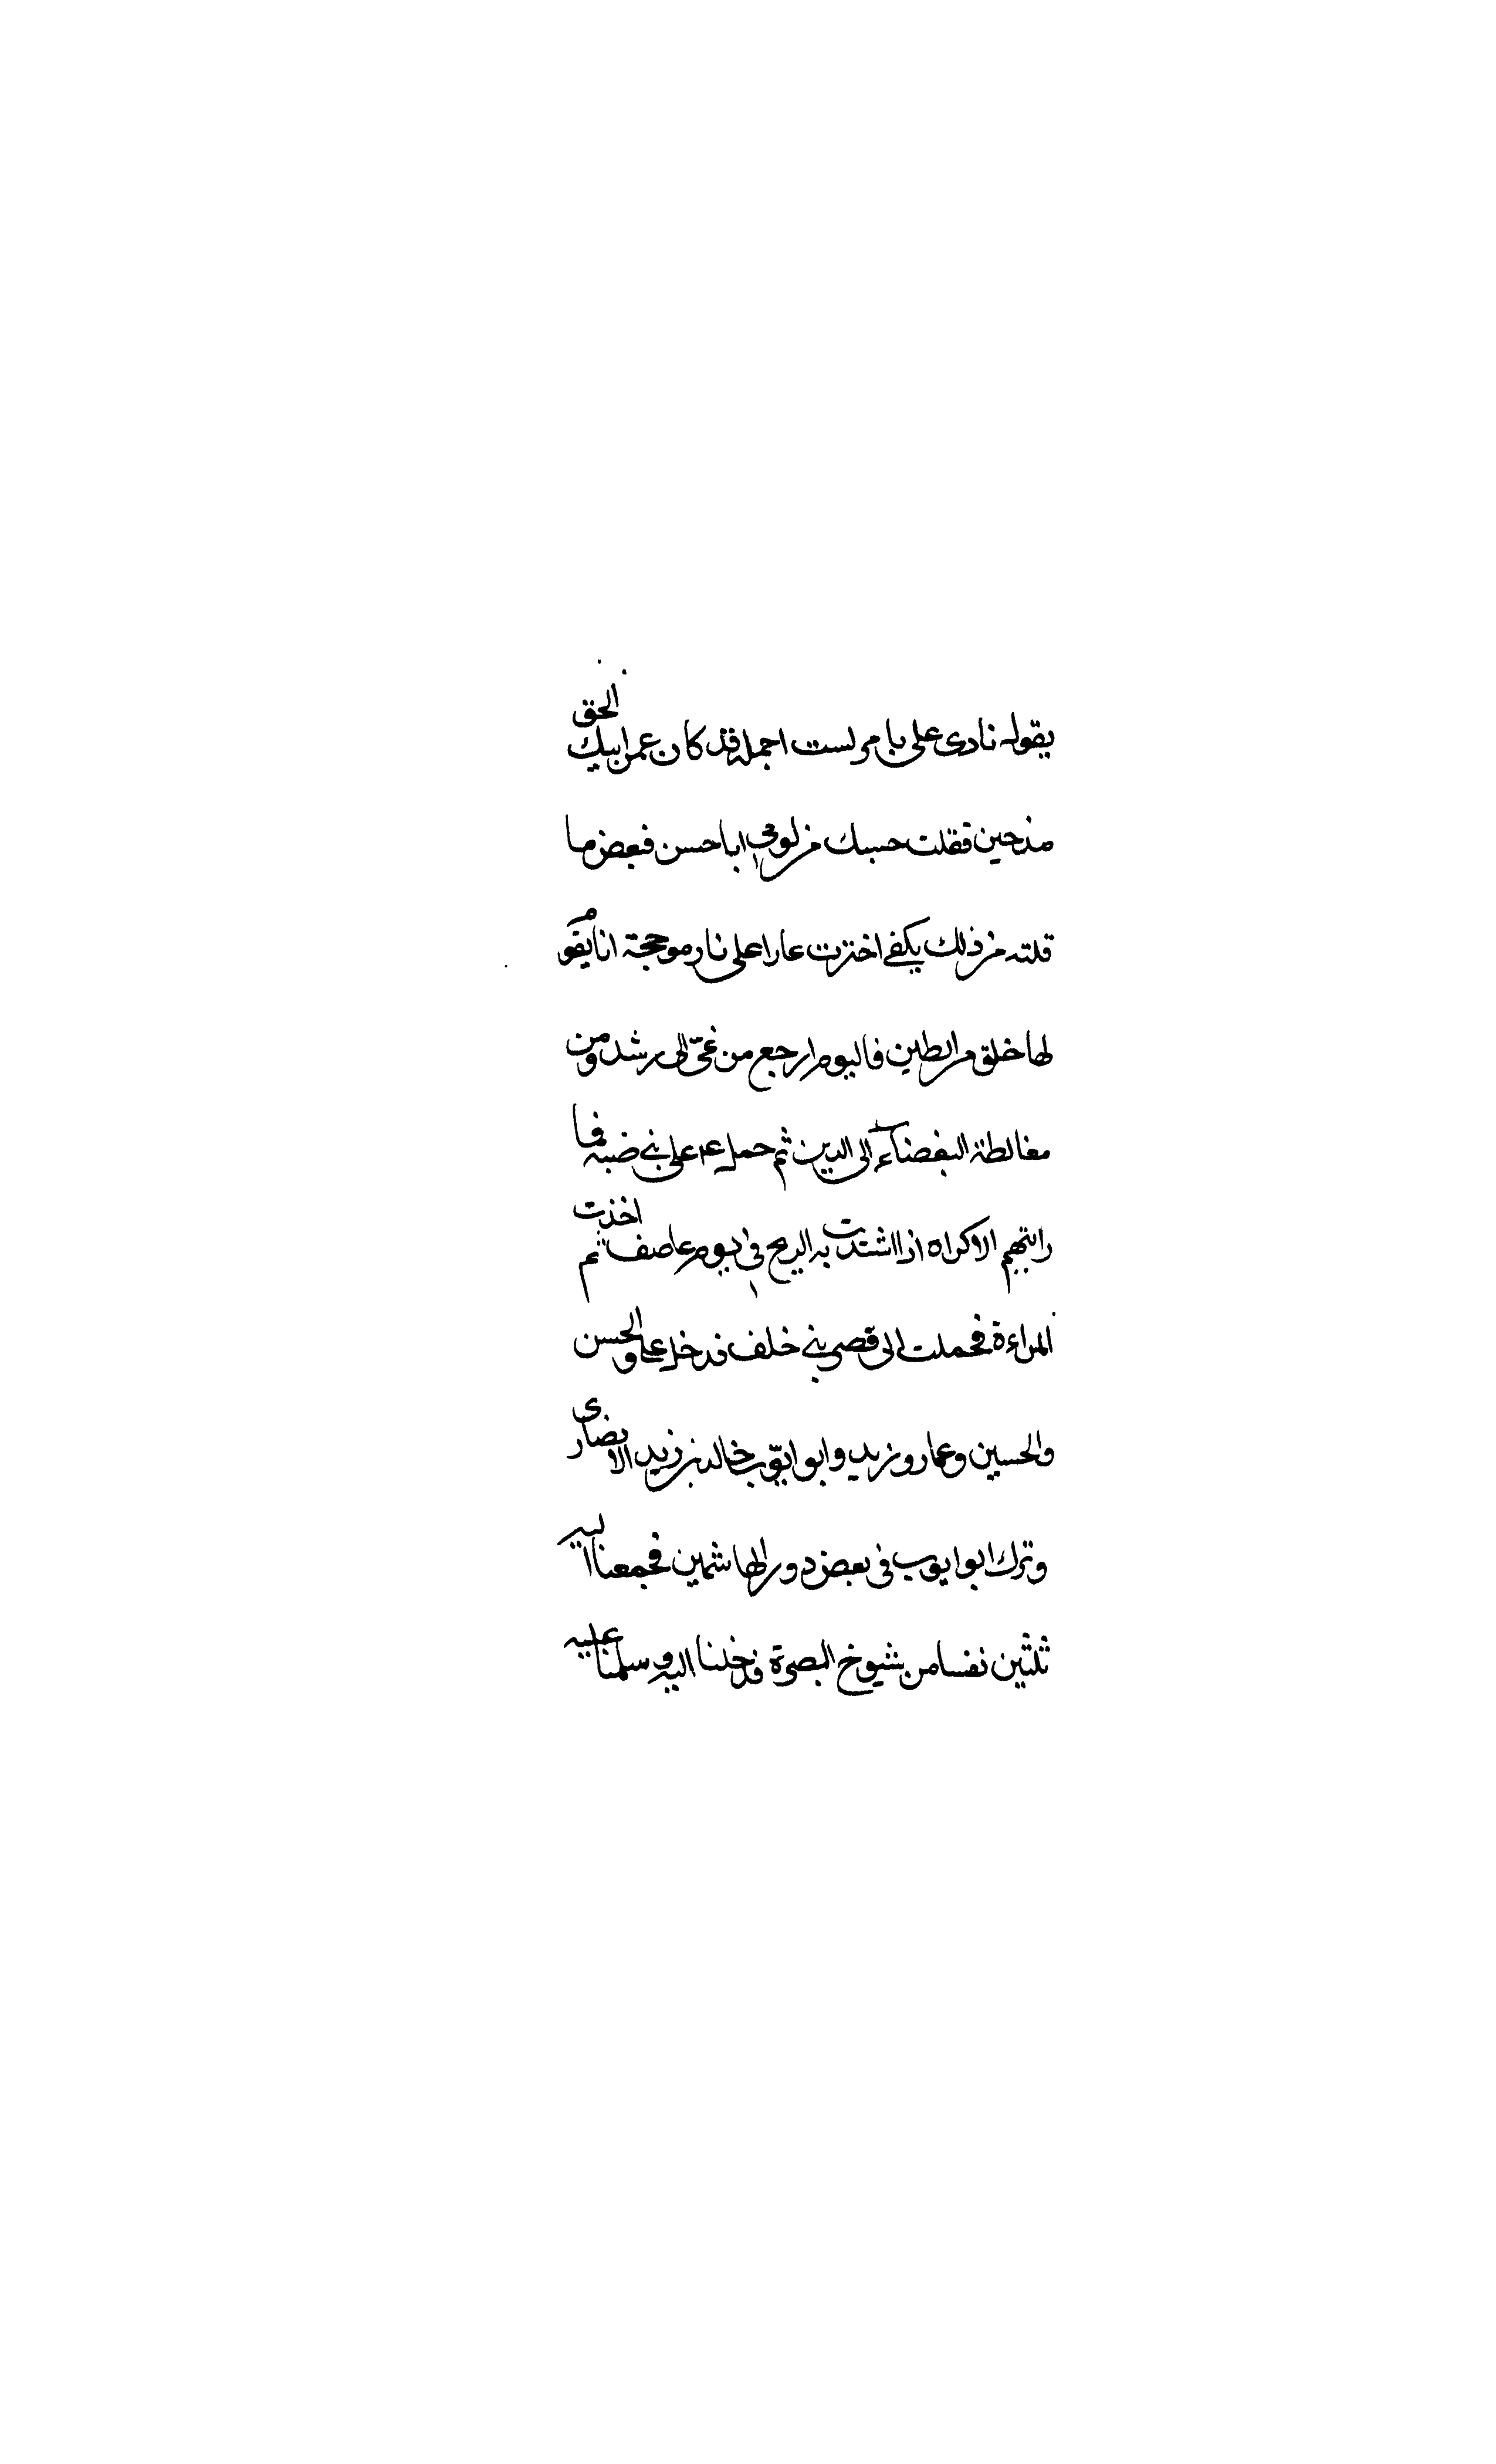 يقوله نادى على بامر لست اجهله قد كان عمر ابيك الحق
مذحين فقلت حسبك من لومي ابا حسن فبعض ما
قلته من ذلك يكفي اخترت عارا على نار موججة انا يقوم
لها خلق من الطين فاليوم ارجع من غيّ الى رشد ومن
مغالطة البغضاء الى الدين ثم حمل ع م على بني ضبة فما
رايتهم الا كراه اذا اشتدت به الريح في يوم عاصف ثم اخذت
المراءة فحملت الى قصر بني خلف فدخل علي والحسن
والحسين وعمار وزيد وابو ايّوب خالد بن زيد الانصارى
وترك ابو ايوب في بعض دور الهاشمين فجمعنا اليه
ثلثين نفسا من شيوخ البصرة فدخلنا اليه وسلمنا عليه